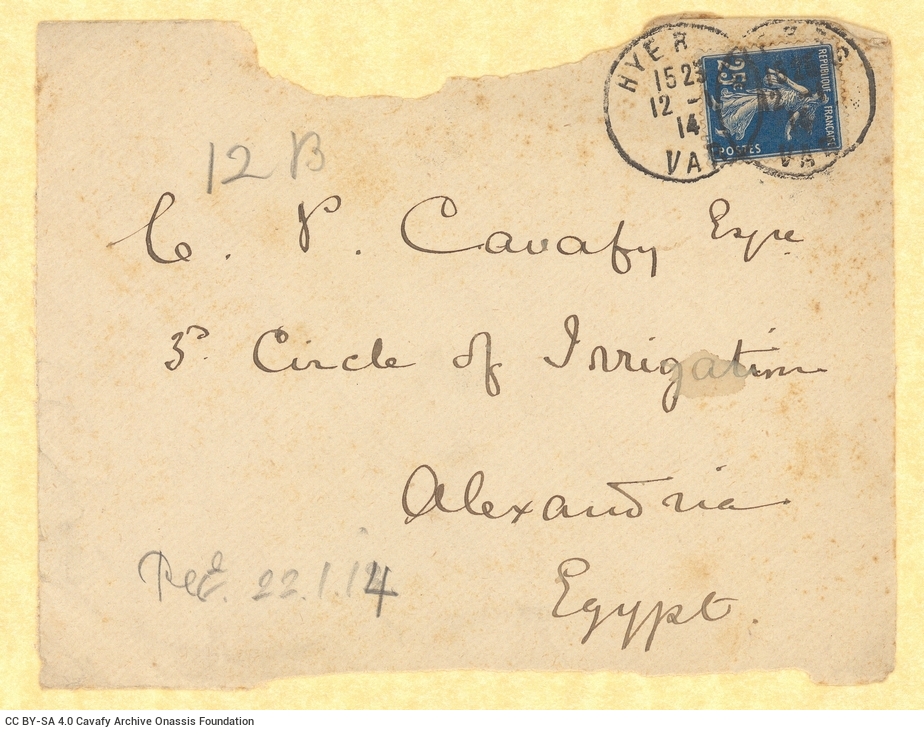 HYER
15 23
12 -
14
VAR
25c
REPUBLIQUE FRANCAISE
POSTES
12
VA
12 B
C. P. Cavafy Esqre
3º Circle of Irrigation
Alexandria
Egypt.
Rec. 22.1.14
CC BY-SA 4.0 Cavafy Archive Onassis Foundation